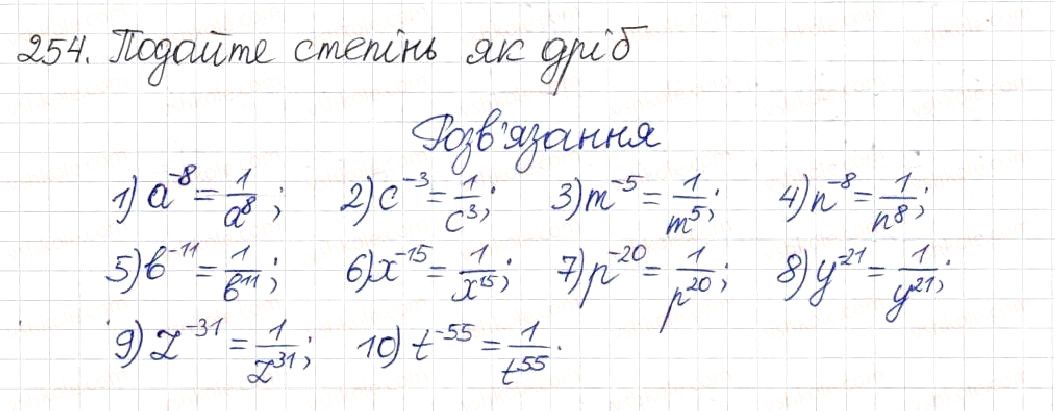 254. Подайте степінь як дріб
Розв'язання
1) a⁻⁸ = 1/a⁸; 2) c⁻³ = 1/c³; 3) m⁻⁵ = 1/m⁵; 4) n⁻⁸ = 1/n⁸;
5) b⁻¹¹ = 1/b¹¹; 6) x⁻¹⁵ = 1/x¹⁵; 7) p⁻²⁰ = 1/p²⁰; 8) y⁻²¹ = 1/y²¹;
9) z⁻³¹ = 1/z³¹; 10) t⁻⁵⁵ = 1/t⁵⁵.